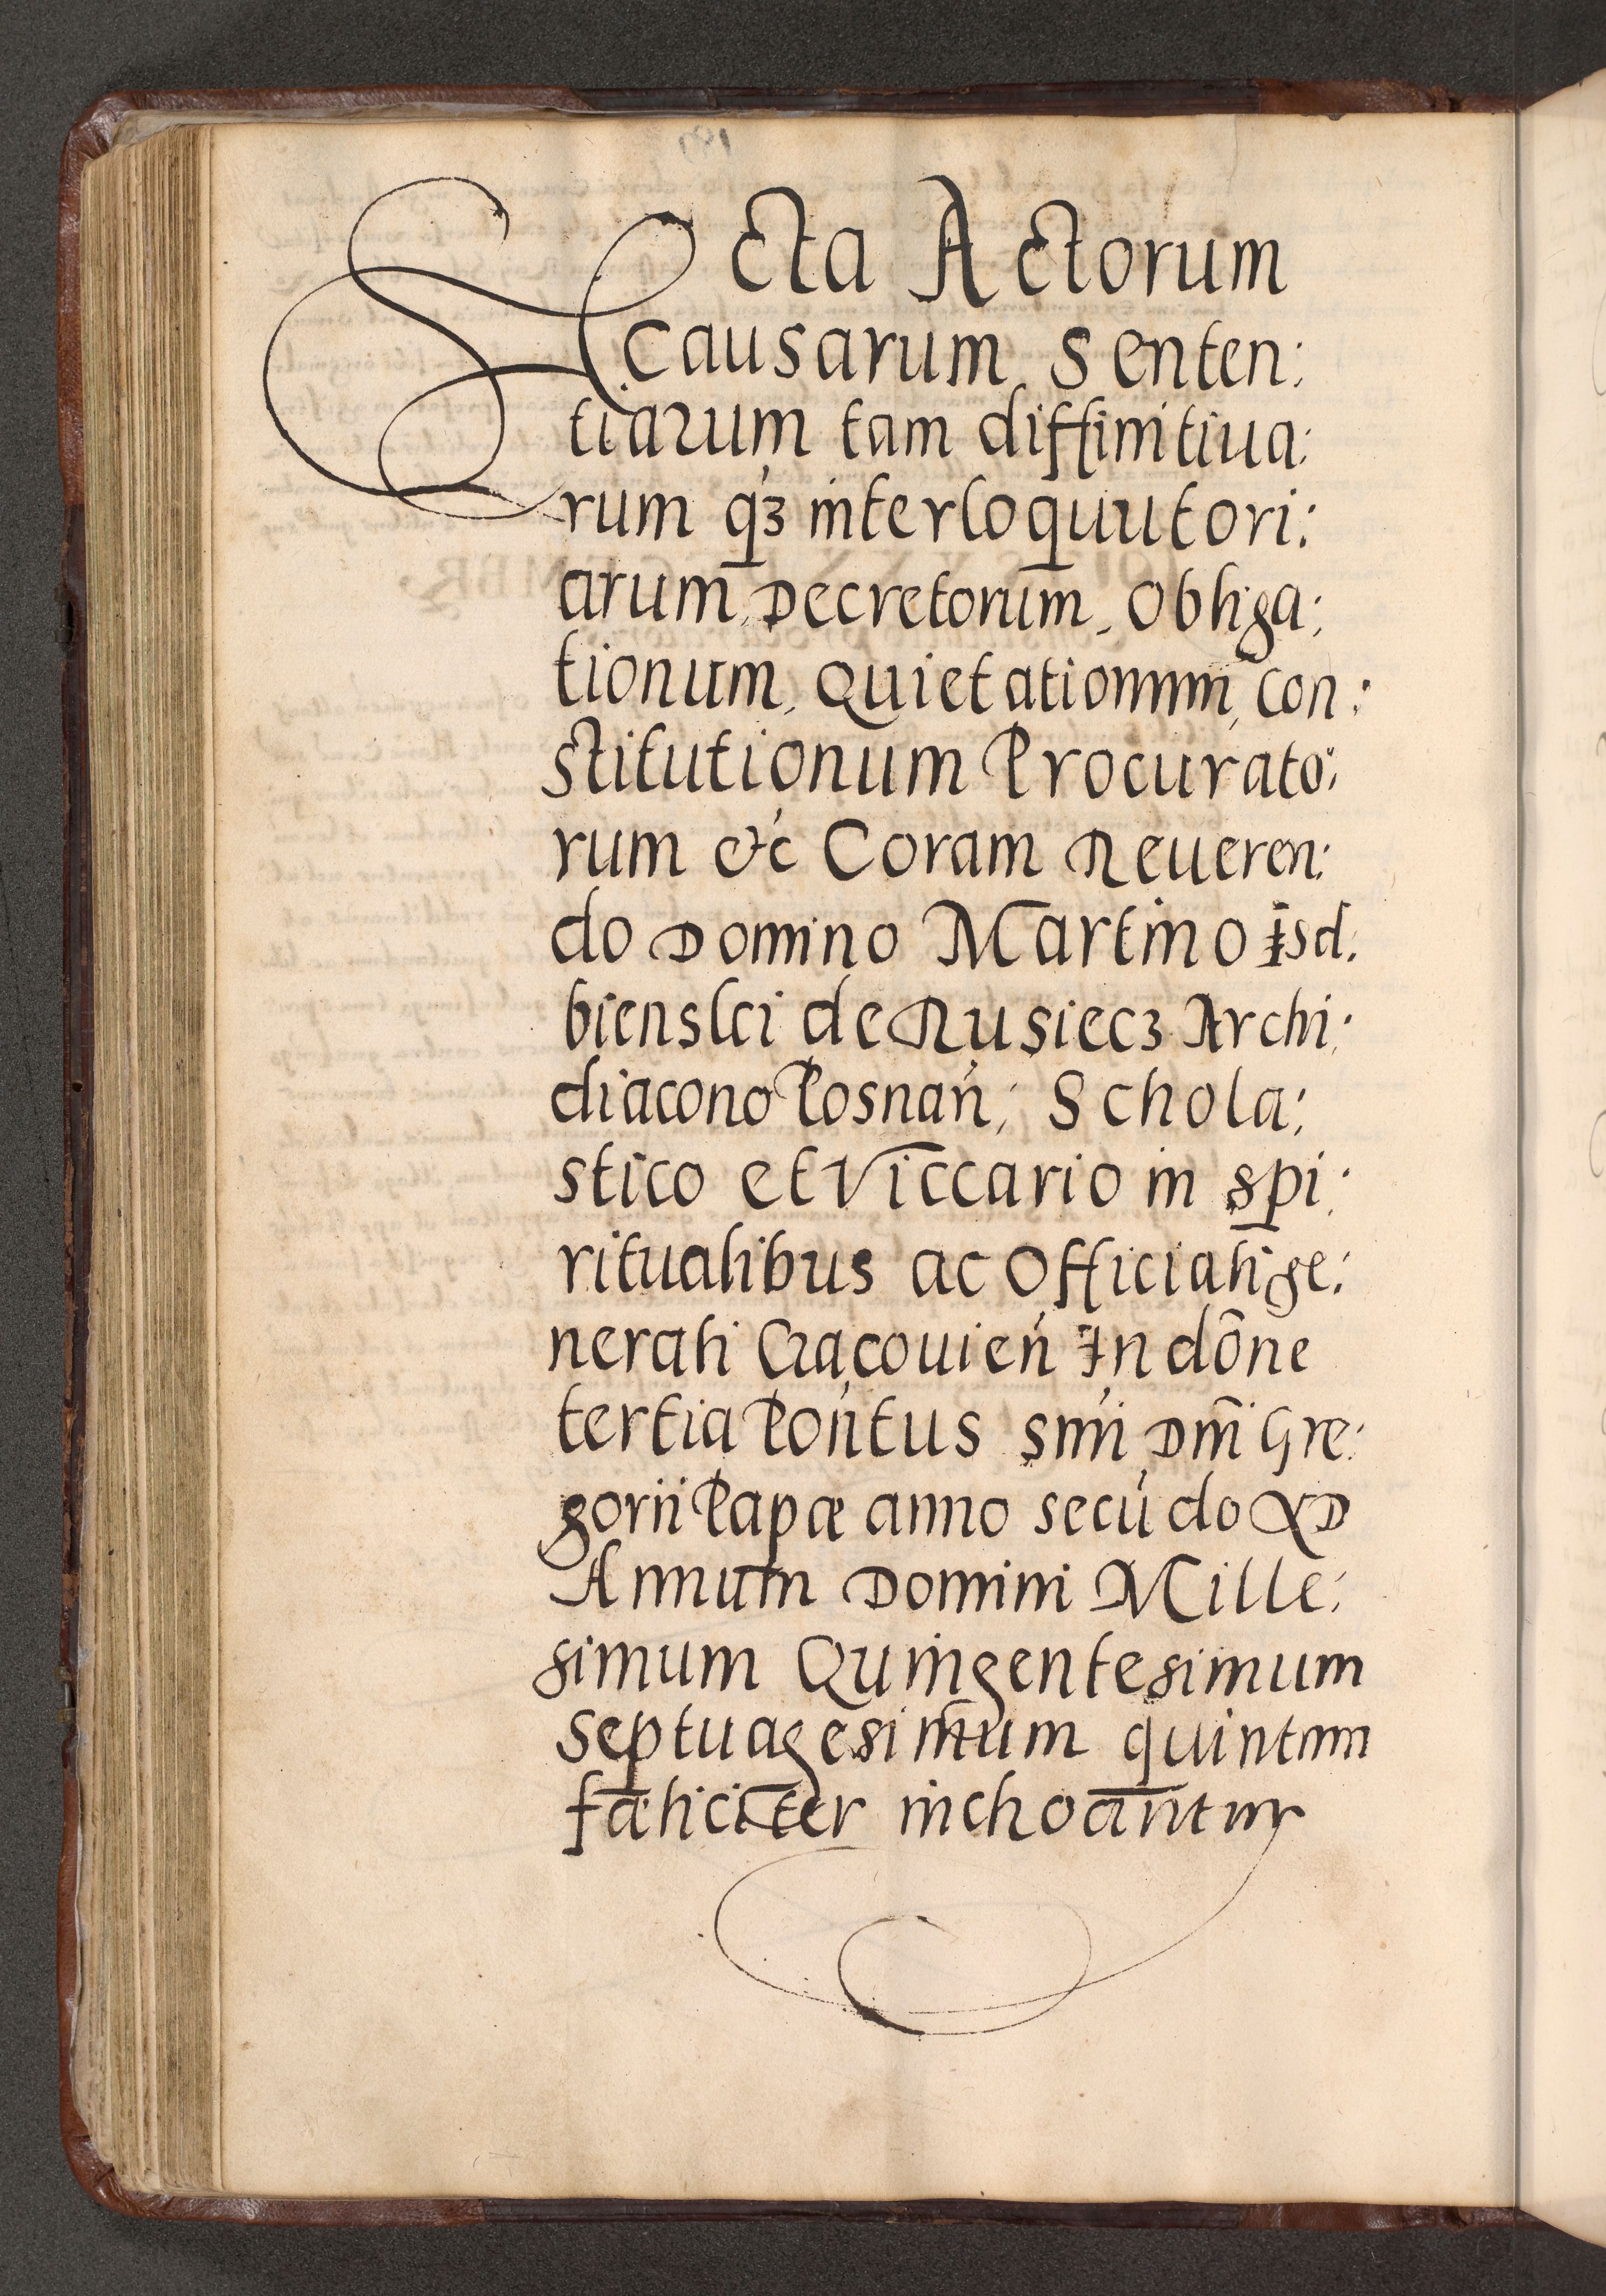 Acta Actorum
Causarum Senten:
tiarum tam diffinitiua:
rum qʒ interloquutori:
arum, Decretorum, Obliga:
tionum, Quietationum, Con:
stitutionum Procurato:
rum etc Coram Reueren:
do Domino Martino Isd:
bienski de Rusiecz Archi:
diacono Posnań, Schola:
stico et Viccario in spi:
ritualibus ac Officiali ge:
nerali Cracouień In dōne
tertia Pontus Smi Dm̄i Gre:
gorii Papæ anno secūdo AD
Annum Domini Mille:
simum Quingentesimum
septuagesimum quintum
fæliciter inchoantur